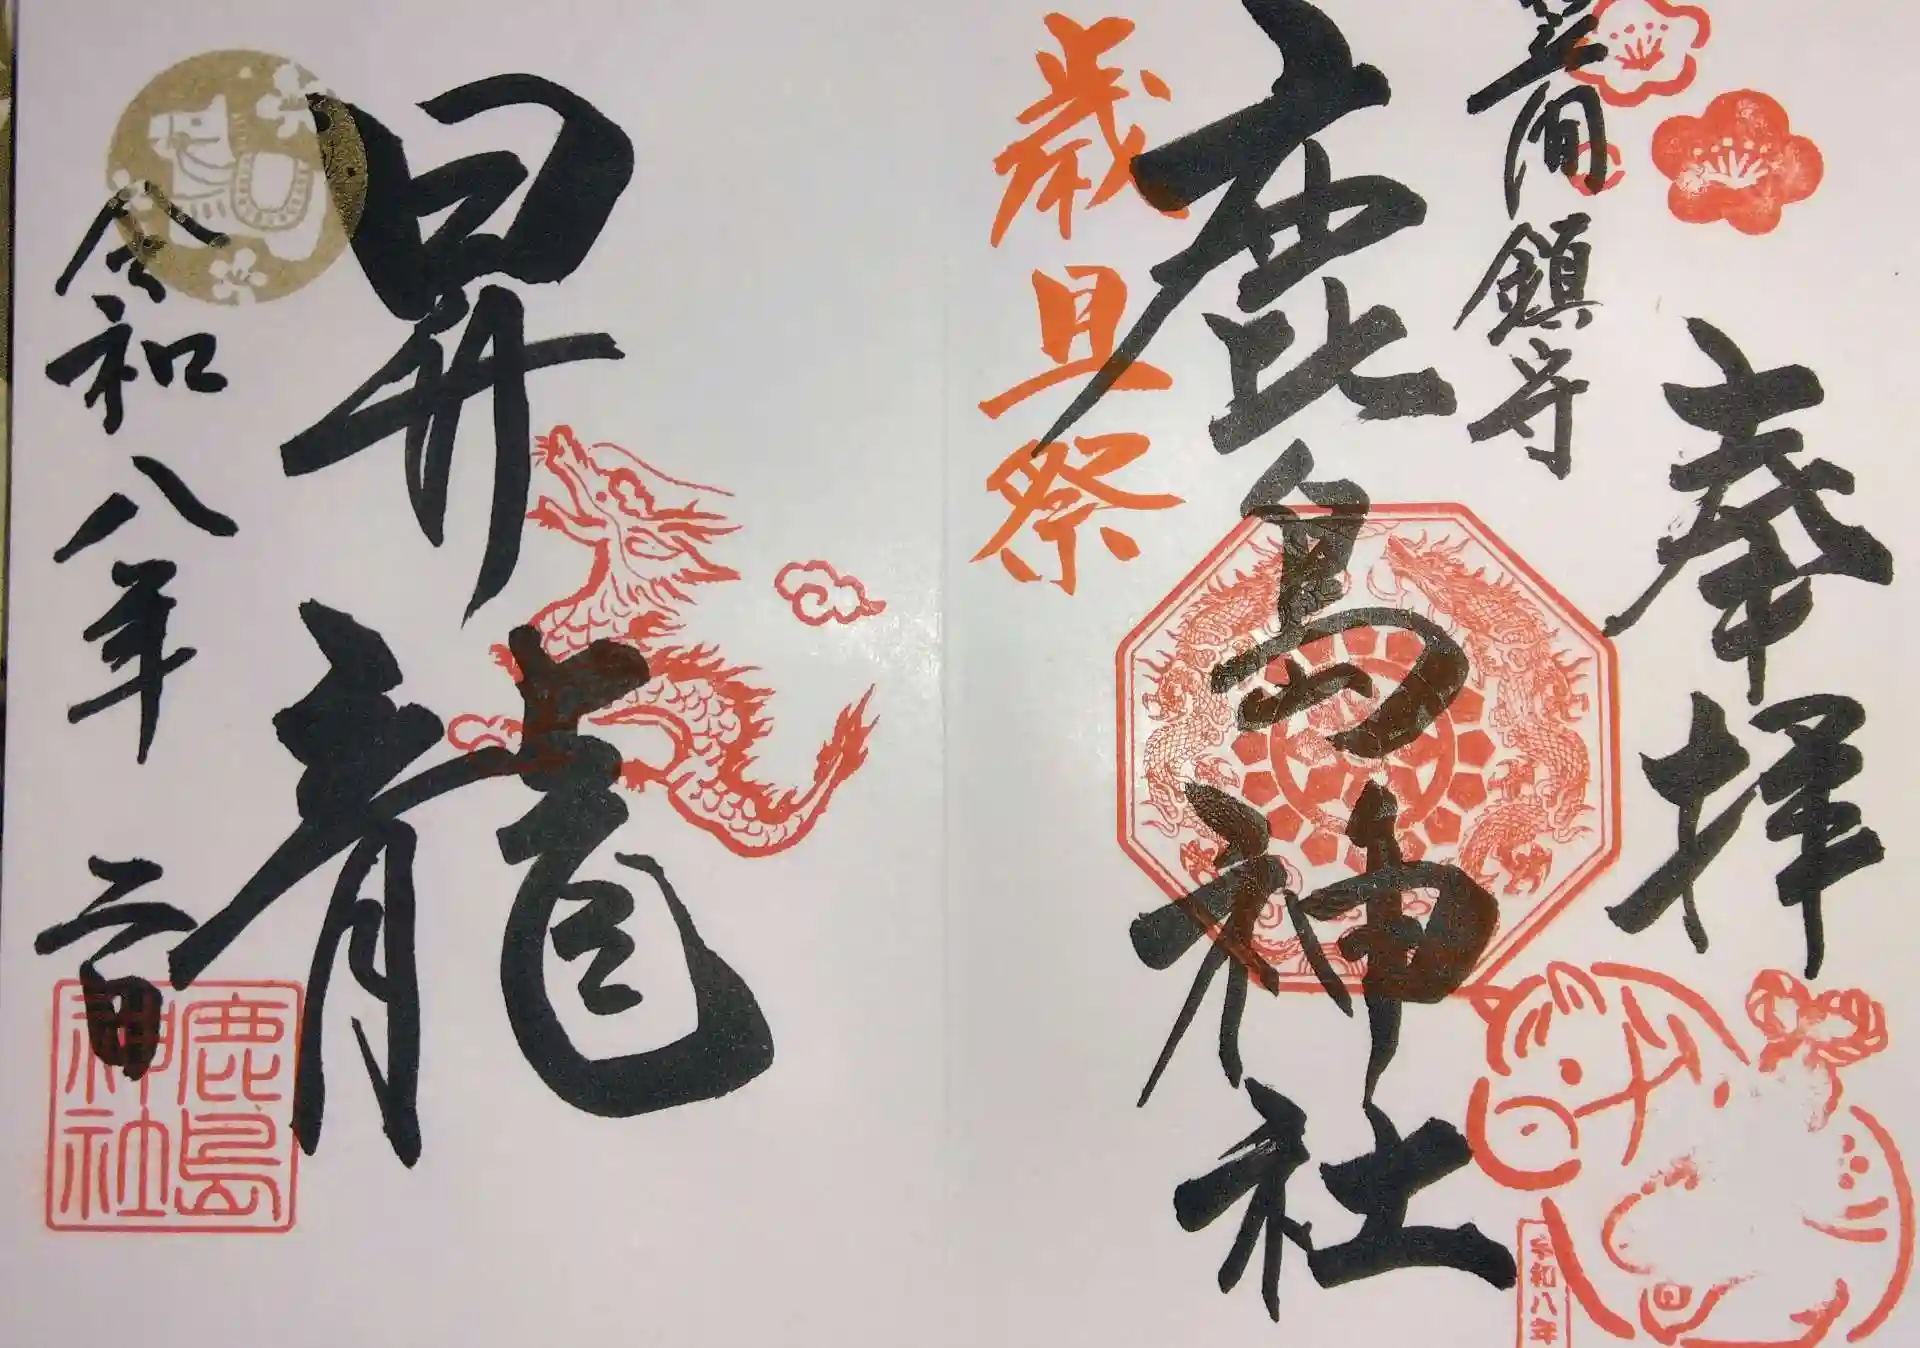 奉拝
笠間鎮守
鹿島神社
歳旦祭
令和八年
昇龍
令和八年
鹿島
神社